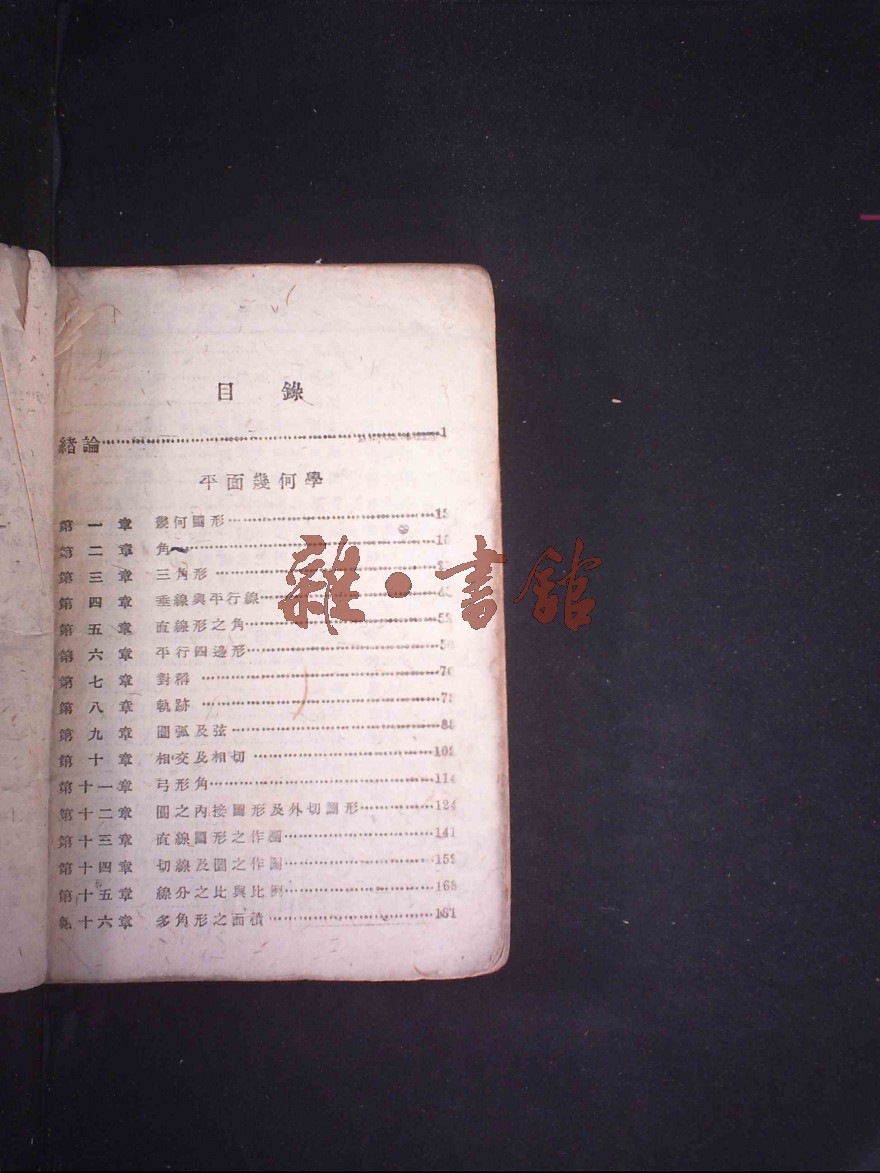 目錄
緒論⋯⋯1
平面幾何學
第一章 幾何圖形⋯⋯13
第二章 角⋯⋯
第三章 三角形⋯⋯
第四章 垂線與平行線⋯⋯
第五章 直線形之角⋯⋯
第六章 平行四邊形⋯⋯
第七章 對稱⋯⋯
第八章 軌跡⋯⋯
第九章 圓弧及弦⋯⋯
第十章 相交及相切⋯⋯
第十一章 弓形角⋯⋯114
第十二章 圓之內接圖形及外切圖形⋯⋯124
第十三章 直線圖形之作圖⋯⋯141
第十四章 切線及圓之作圖⋯⋯159
第十五章 線分之比與比例⋯⋯168
第十六章 多角形之面積⋯⋯181
雜·書館